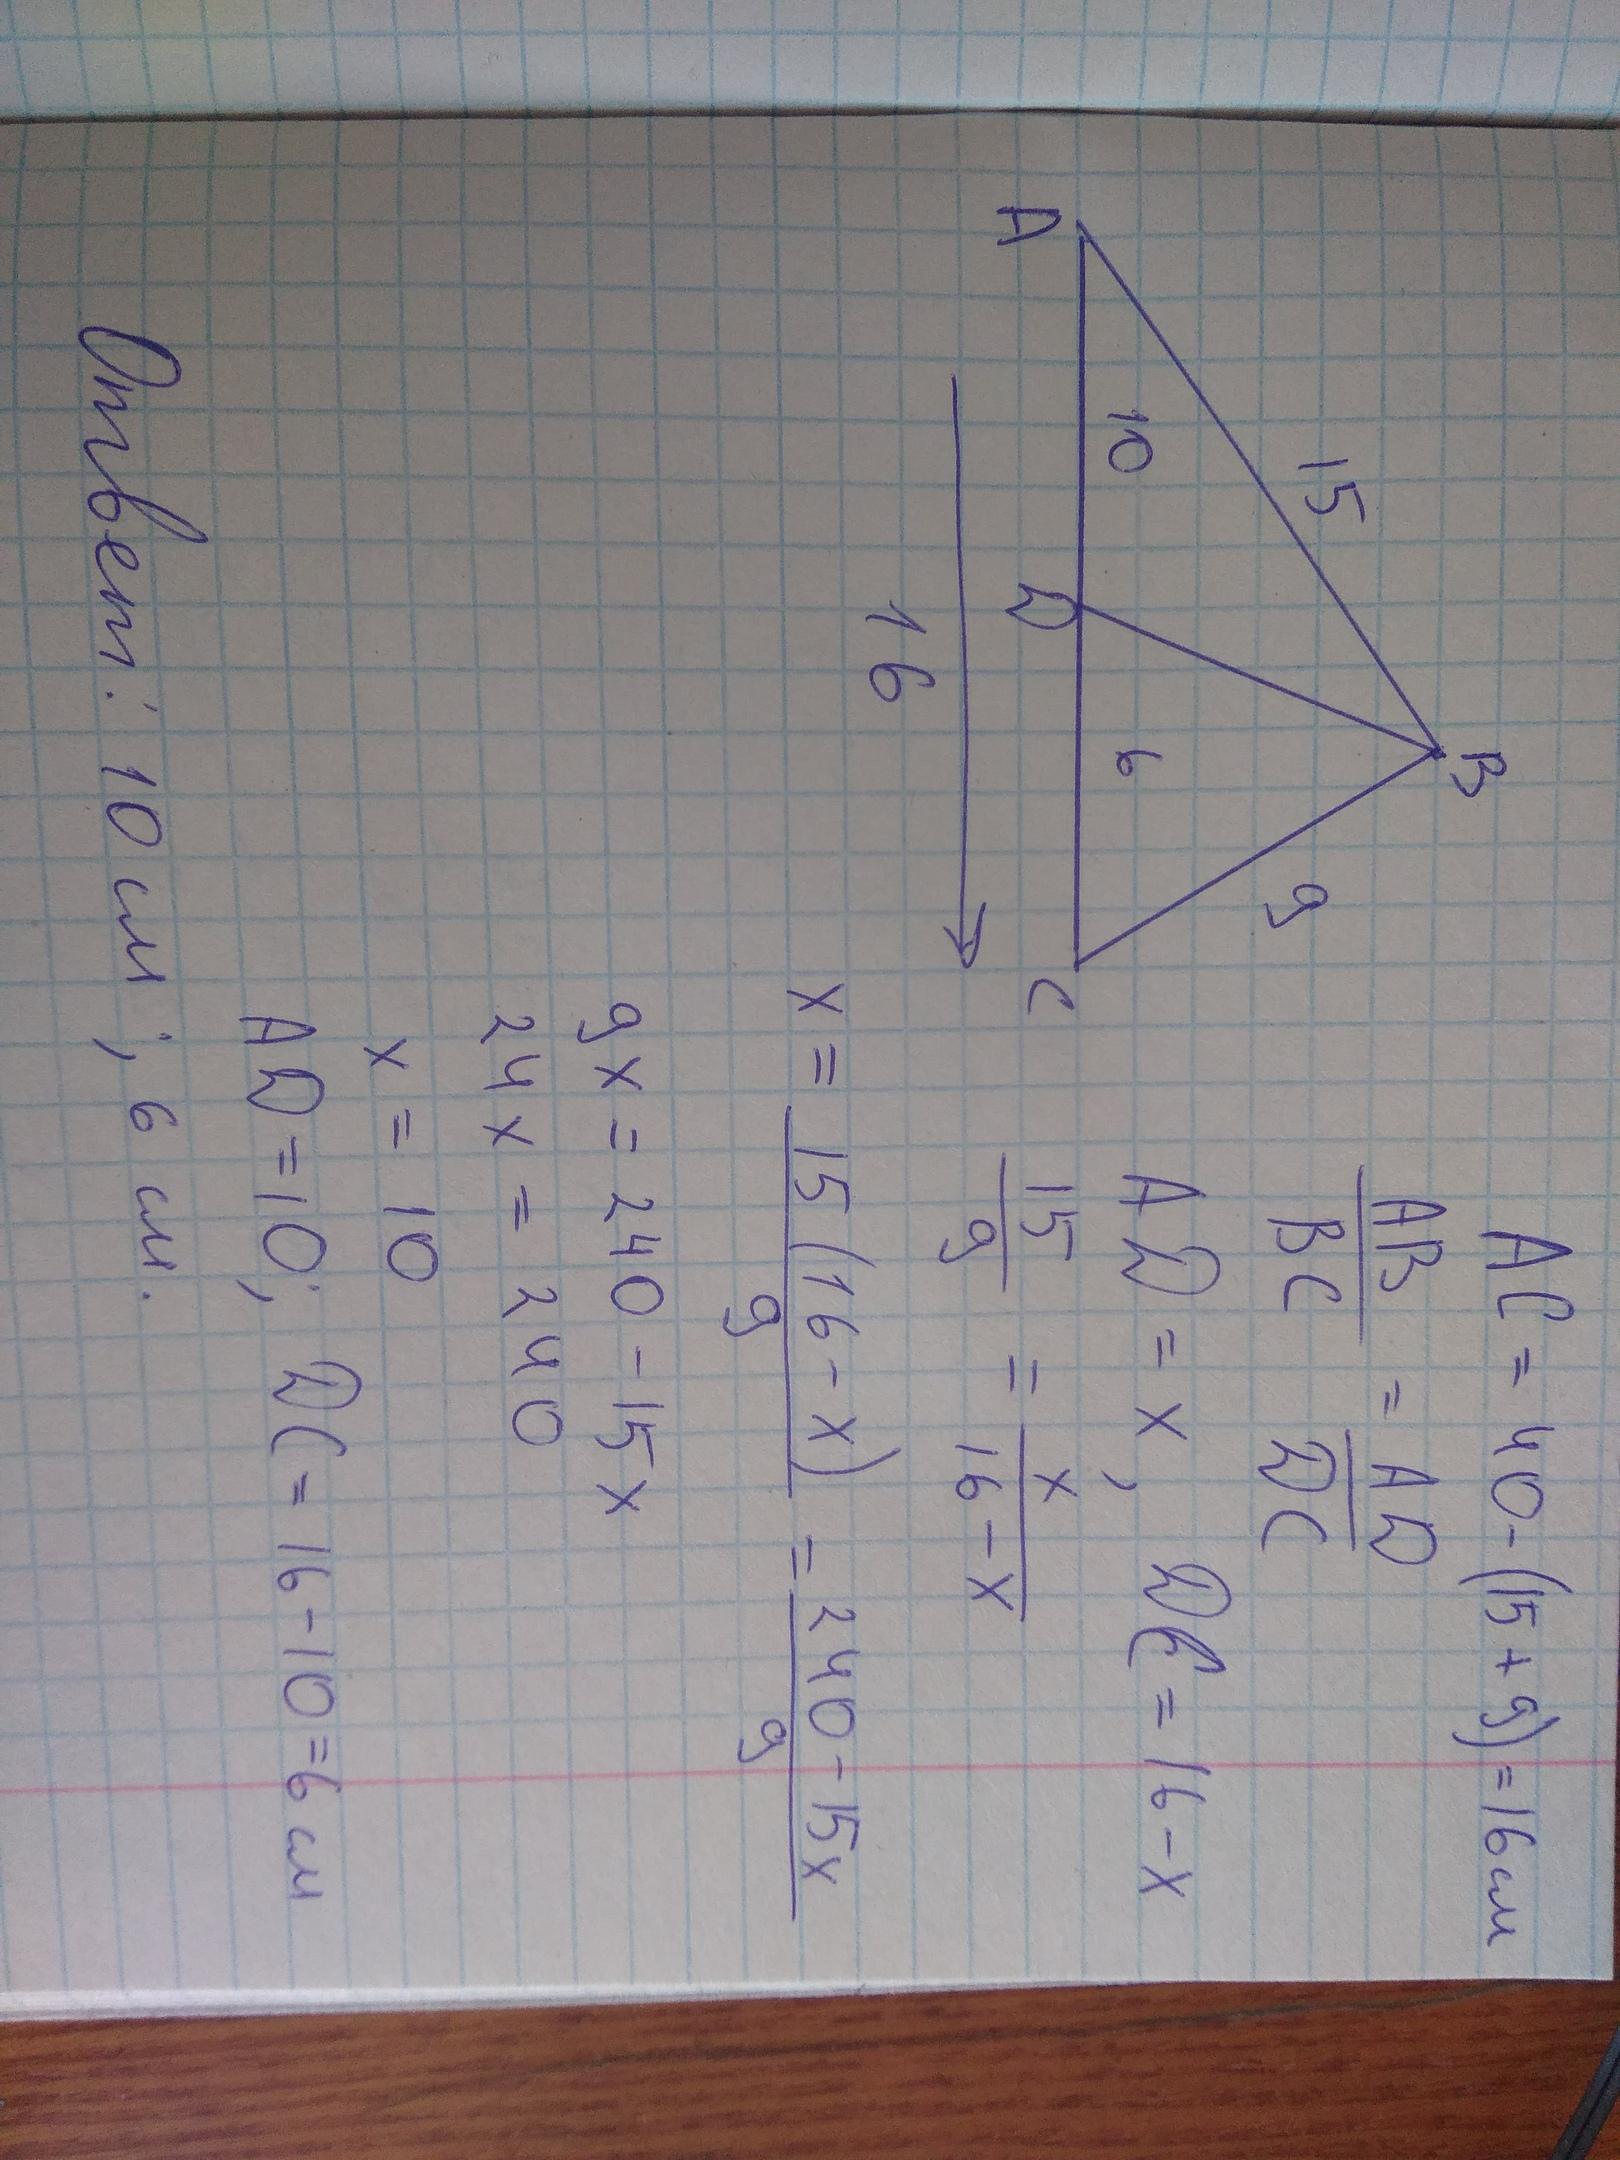 B
15
9
10
6
A
D
C
16
AC = 40 - (15 + 9) = 16 см
AB/BC = AD/DC
AD = x, DC = 16 - x
15/9 = x/16 - x
x = 15(16 - x)/9 = 240 - 15x/9
9x = 240 - 15x
24x = 240
x = 10
AD = 10; DC = 16 - 10 = 6 см
Ответ: 10 см; 6 см.